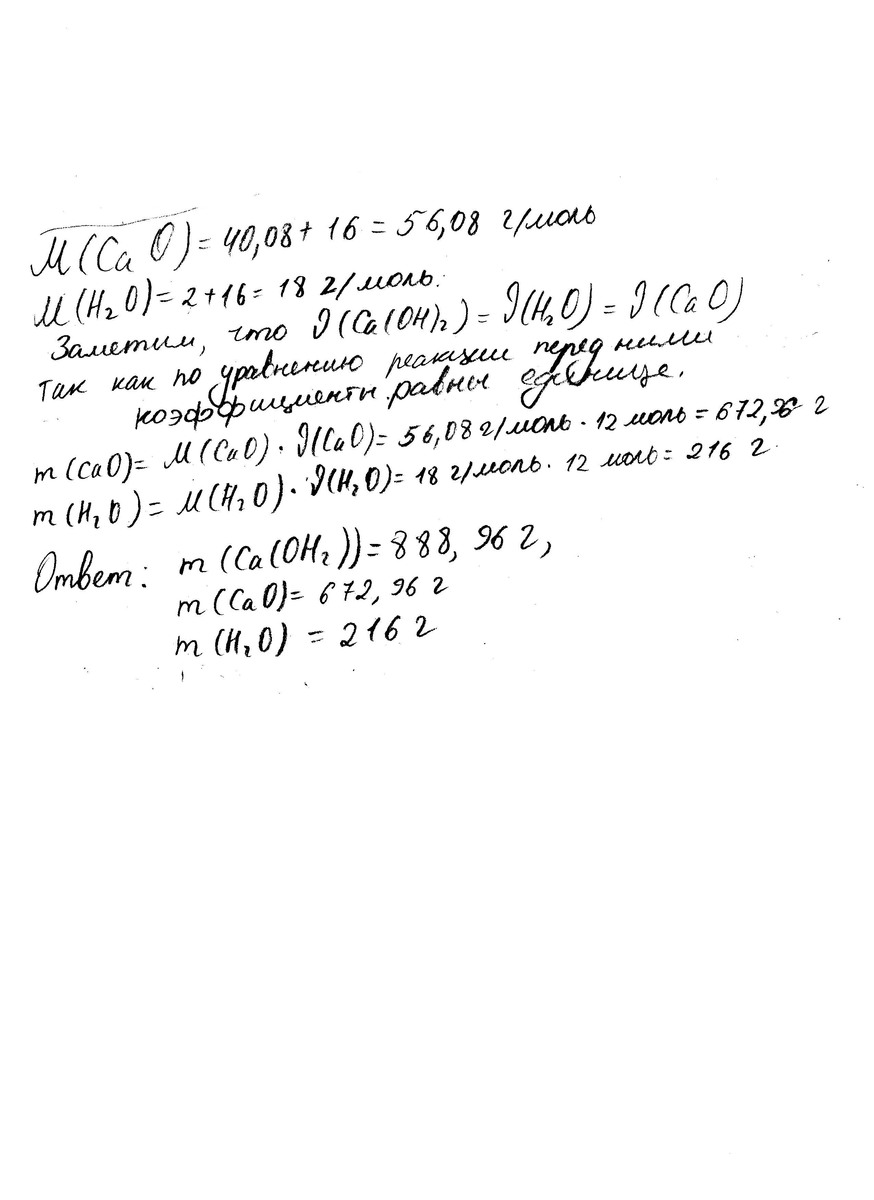 M(CaO) = 40,08 + 16 = 56,08 г/моль
M(H₂O) = 2 + 16 = 18 г/моль.
Заметим, что ν(Ca(OH)₂) = ν(H₂O) = ν(CaO)
так как по уравнению реакции перед ними
коэффициенты равны единице.
m(CaO) = M(CaO) · ν(CaO) = 56,08 г/моль · 12 моль = 672,96 г
m(H₂O) = M(H₂O) · ν(H₂O) = 18 г/моль · 12 моль = 216 г
Ответ: m(Ca(OH₂)) = 888,96 г,
m(CaO) = 672,96 г
m(H₂O) = 216 г